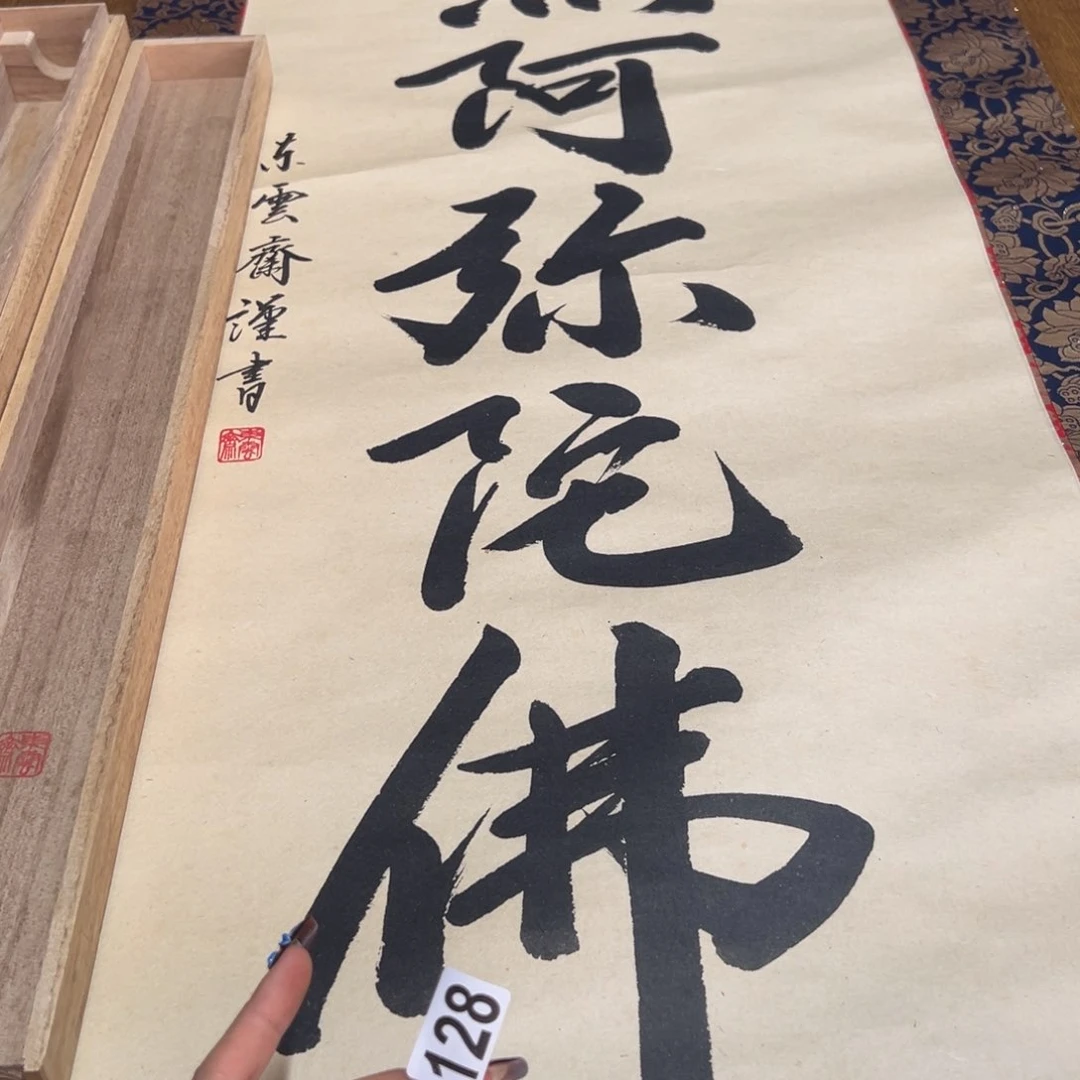 阿弥陀佛
東雲齋謹書
128